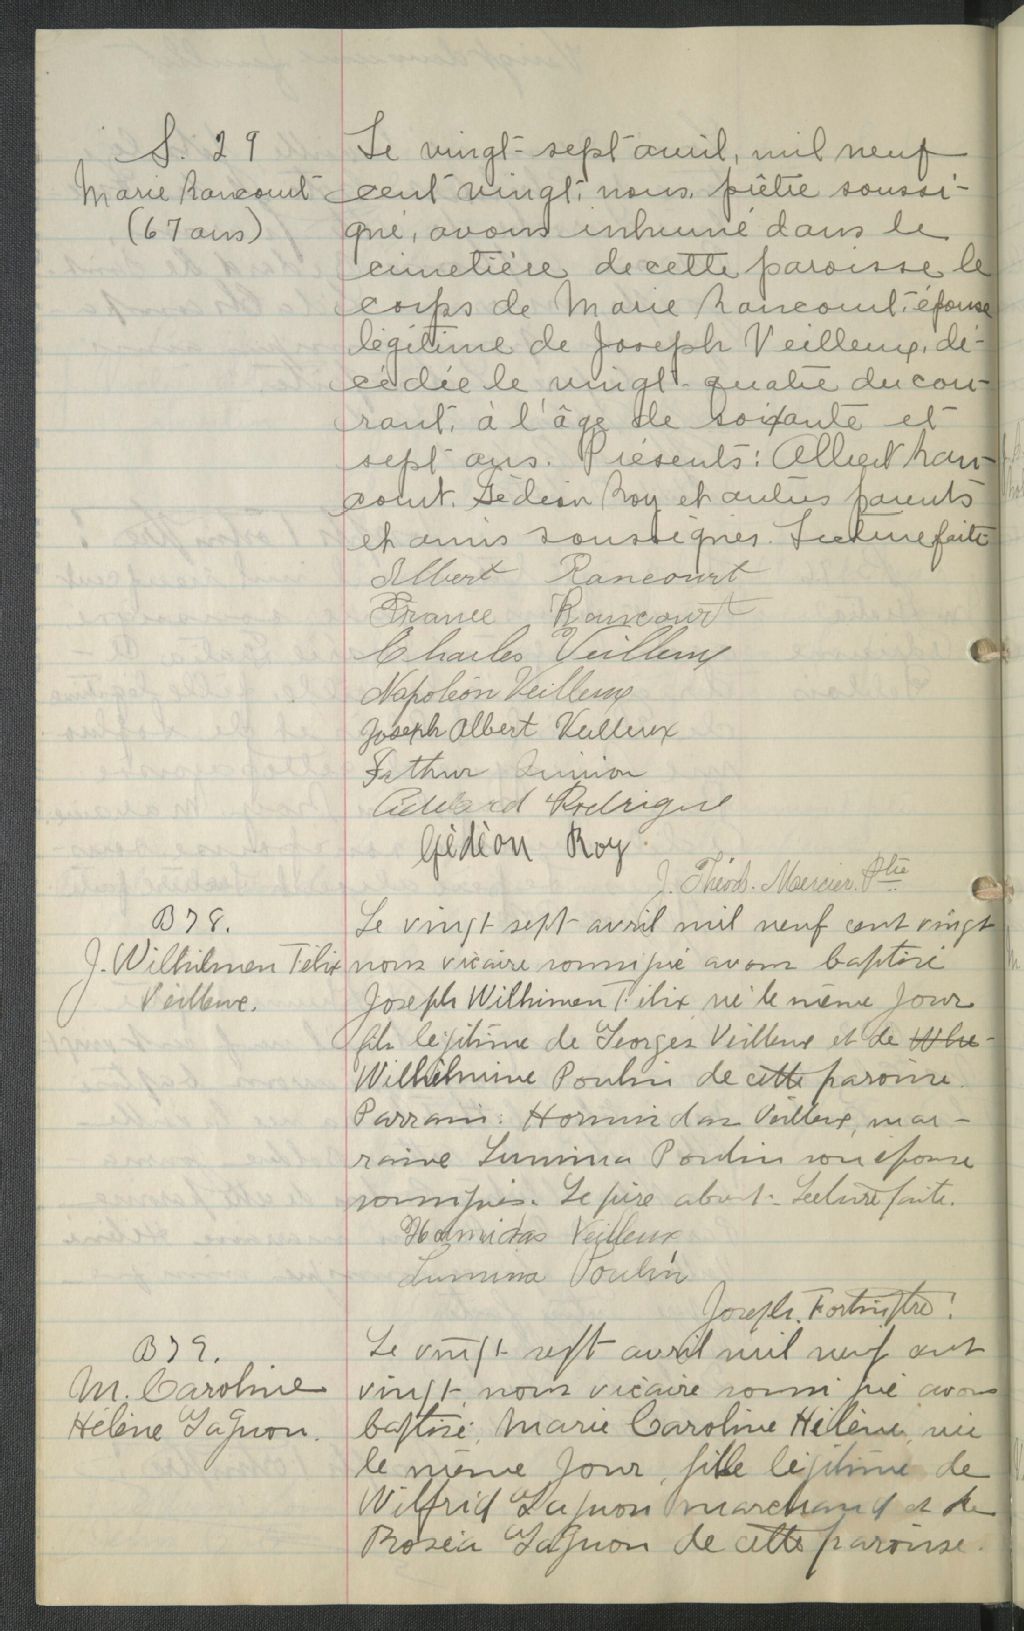 S. 29
Marie Rancourt
(67 ans)
Le vingt-sept avril, mil neuf
cent vingt, nous, prêtre soussi-
gné, avons inhumé dans le
cimetière de cette paroisse le
corps de Marie Rancourt, épouse
légitime de Joseph Veilleux, dé-
cédée le vingt-quatre du cou-
rant, à l'âge de soixante et
sept ans. Présents: Albert Ran-
court, Gédéon Roy et autres parents
et amis soussignés. Lecture faite
Albert Rancourt
France Rancourt
Charles Veilleux
Napoléon Veilleux
Joseph Albert Veilleux
Rodrigue
Gédéon Roy
J. Théod. Mercier Ptre
B78.
J. Wilhilmen Félix
Veilleux.
Le vingt sept avril mil neuf cent vingt
nous vicaire soussigné avons baptisé
Joseph Wilhimen Félix, né le même jour
fils légitime de Georges Veilleux et de
Wilhelmine Poulin de cette paroisse.
Parrain: Hormidas Veilleux, mar-
raine Lumina Poulin son épouse
soussignés. Le père absent. Lecture faite.
Hormidas Veilleux
Lumina Poulin
Joseph. Fortin ptre.
B79.
M. Caroline
Hélène Gagnon.
Le vingt sept avril mil neuf cent
vingt, nous vicaire soussigné avons
baptisé, Marie Caroline Hélène, née
le même jour, fille légitime de
Wilfrid Gagnon marchand et de
Roséa Gagnon de cette paroisse.